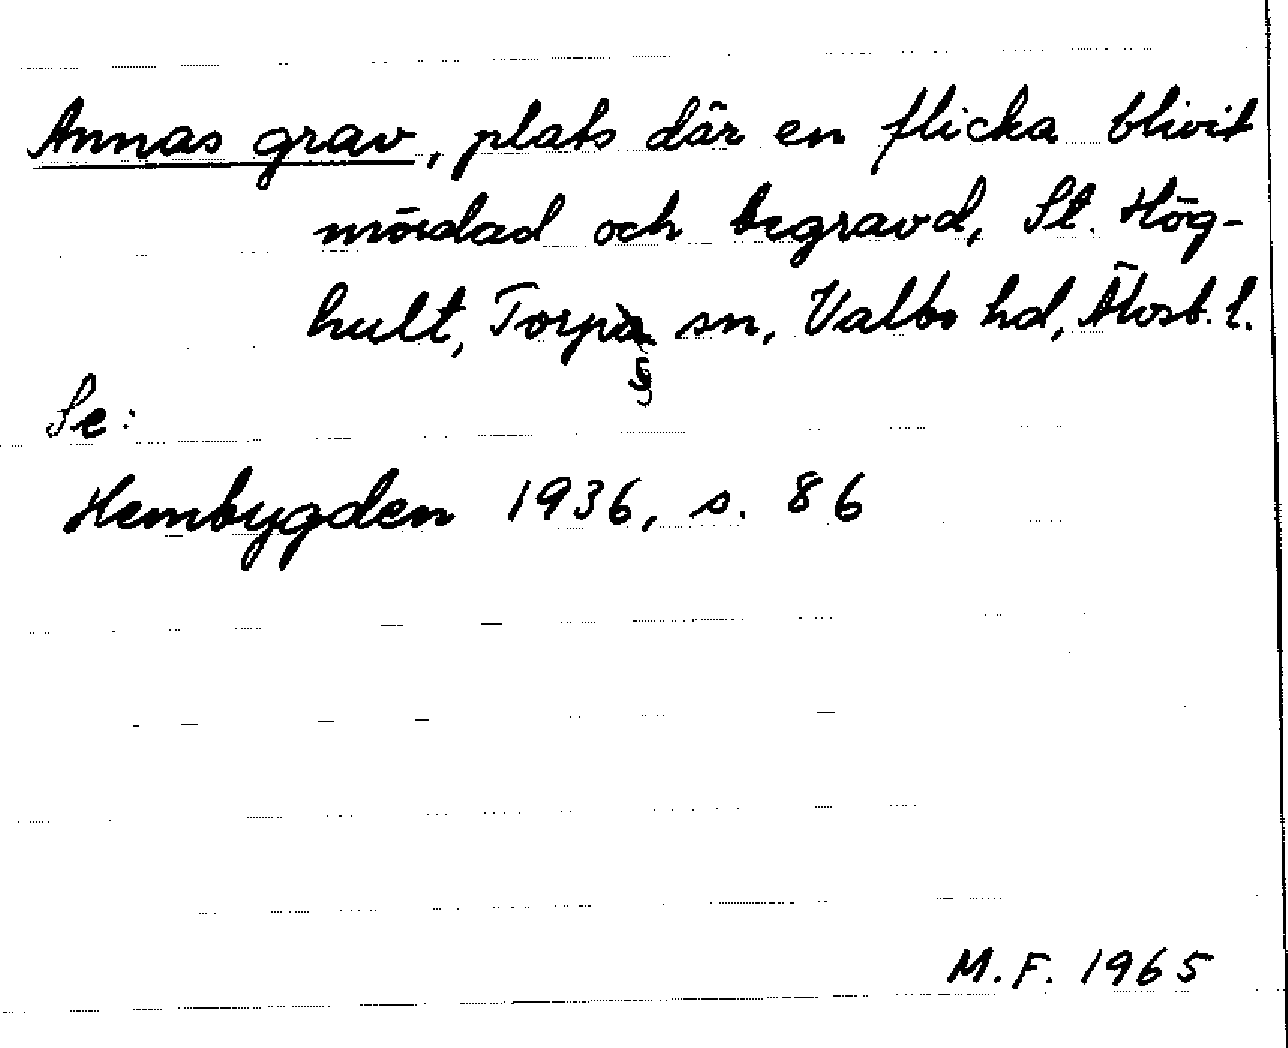 Annas grav, plats där en flicka blivit
mördad och begravd, St. Hög-
hult, Torpa sn, Valbo hd, Älvsb. l.
Se:
Hembygden 1936, s. 86
M.F. 1965